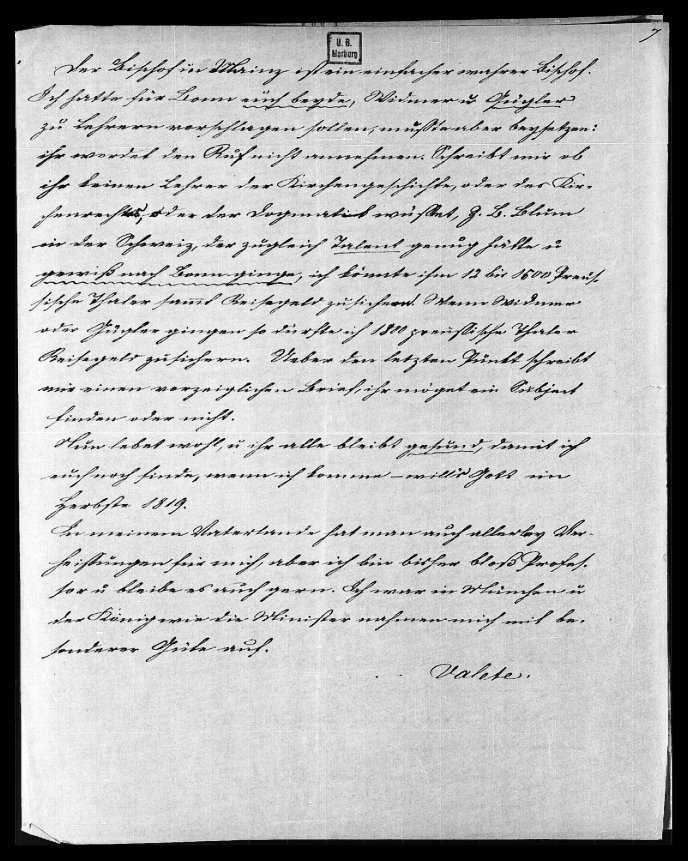 7
U. B.
Marburg
Der Bischof in Mainz ist ein einfacher wahrer Bischof.
Ich hatte für Bonn euch beyde, Widmer u Gügler
zu Lehrern vorschlagen sollen, mußte aber beysetzen:
ihr werdet den Ruf nicht annehmen. Schreibt mir ob
ihr keinen Lehrer der Kirchengeschichte, oder des Kir-
chenrechts, oder der Dogmatik wüsstet, z. B. Blum
in der Schweiz, der zugleich Talent genug hätte u
gewiß nach Bonn ginge, ich könnte ihm 12 bis 1500 Preus-
sische Thaler sammt Reisegeld zusichern. Wenn Widmer
oder Gügler gingen so dürfte ich 1800 preussische Thaler
Reisegeld zusichern. Ueber den letzten Punkt schreibt
mir einen vorzeiglichen Brief, ihr möget ein Subject
finden oder nicht.
Nun lebet wohl, u ihr alle bleibt gesund, damit ich
euch noch finde, wenn ich komme – will's Gott im
Herbste 1819.
In meinem Vaterlande hat man auch allerley Ver-
heissungen für mich, aber ich bin bisher bloß Profes-
sor u bleibe es auch gern. Ich war in München u
der König wie die Minister nahmen mich mit be-
sonderer Güte auf.
Valete.